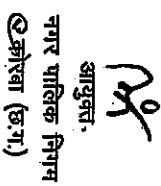 आयुक्त.
नगर पालिक निगम
कोरबा (छ.ग.)